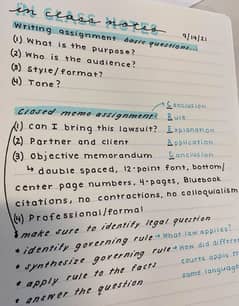 in class notes
Writing assignment basic questions...
9/14/21
(1) What is the purpose?
(2) Who is the audience?
(3) Style/format?
(4) Tone?
Closed memo assignment
Conclusion
Rule
Explanation
Application
Conclusion
(1) Can I bring this lawsuit?
(2) Partner and client
(3) Objective memorandum
↳ double spaced, 12-point font, bottom/
center page numbers, 4-pages, Bluebook
citations, no contractions, no colloquialism
(4) Professional/formal
make sure to identify legal question
• identify governing rule → What law applies?
• synthesize governing rule → How did different
courts apply th
same language
• apply rule to the facts
• answer the question